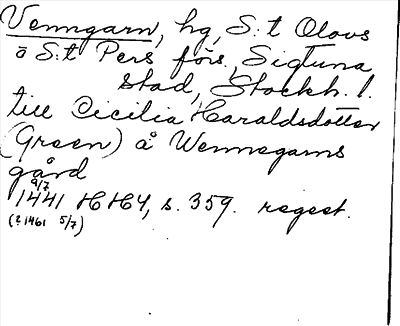 Venngarn, hg, S:t Olovs
o S:t Pers förs., Sigtuna
stad, Stockh. l.
till Cicilia Haraldsdotter
(Green) å Wennegarns
gård
9/7
1441 HH4, s. 359. regest.
(? 1461 5/7)